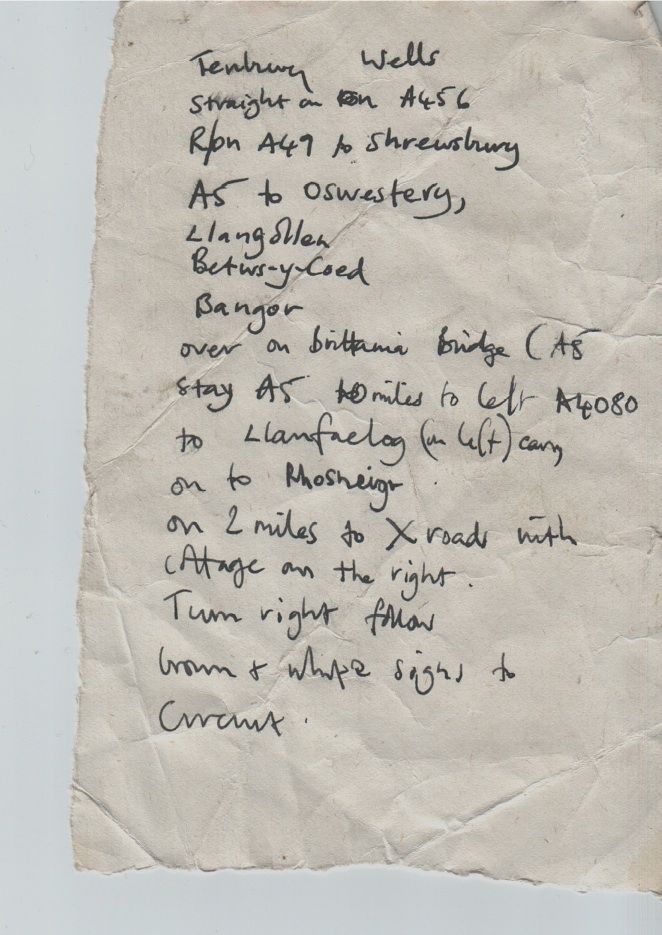 Tenbury Wells
straight on on A456
R/on A49 to Shrewsbury
A5 to Oswestery,
Llangollen
Betws-y-Coed
Bangor
over on Brittania Bridge (A5
stay A5 10 miles to left A4080
to Llanfaelog (on left) carry
on to Rhosneigr
on 2 miles to X roads with
cottage on the right.
Turn right follow
brown & white signs to
Circuit.